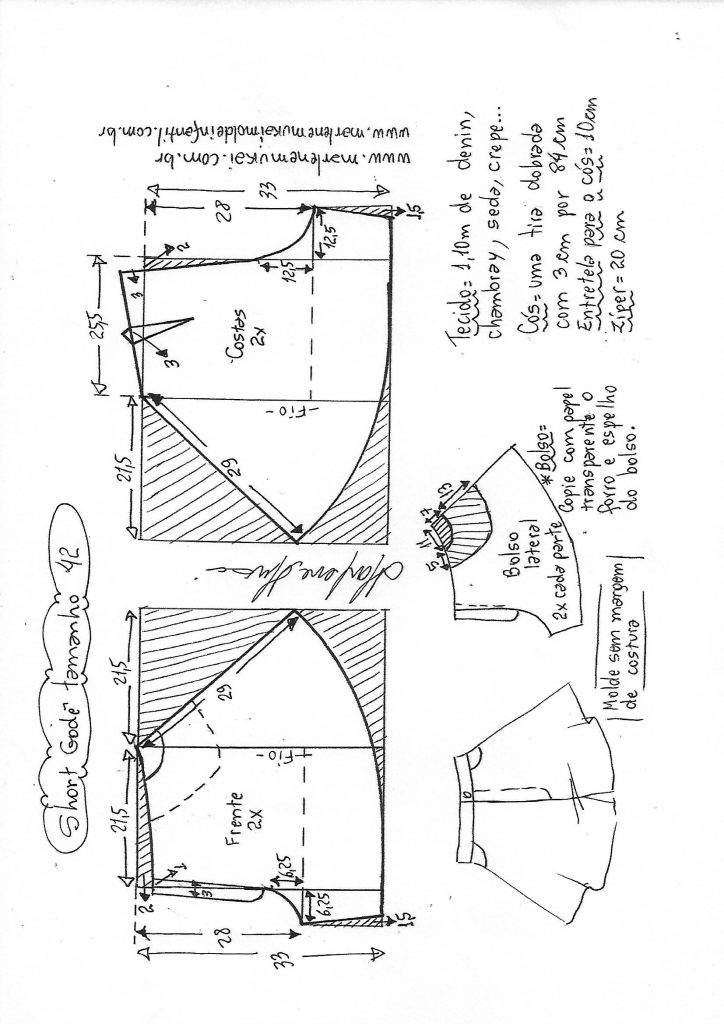 Short Godê tamanho 42
www.marlenemukai.com.br
www.marlenemukaimoldeinfantil.com.br
33
28
21,5
21,5
2
1
3
6,25
6,25
1,5
Frente
2x
-Fio-
29
21,5
25,5
33
28
2
3
3
12,5
12,5
1,5
Costas
2x
-Fio-
29
Tecido= 1,10m de denin,
chambray, seda, crepe...
Cós= uma tira dobrada
com 3 cm por 84 cm
Entretela para o cós= 10cm
Zíper= 20 cm
5
11
7
13
Bolso
lateral
2x cada parte
*Bolso=
Copie com papel
transparente o
forro e espelho
do bolso.
Molde sem margem
de costura